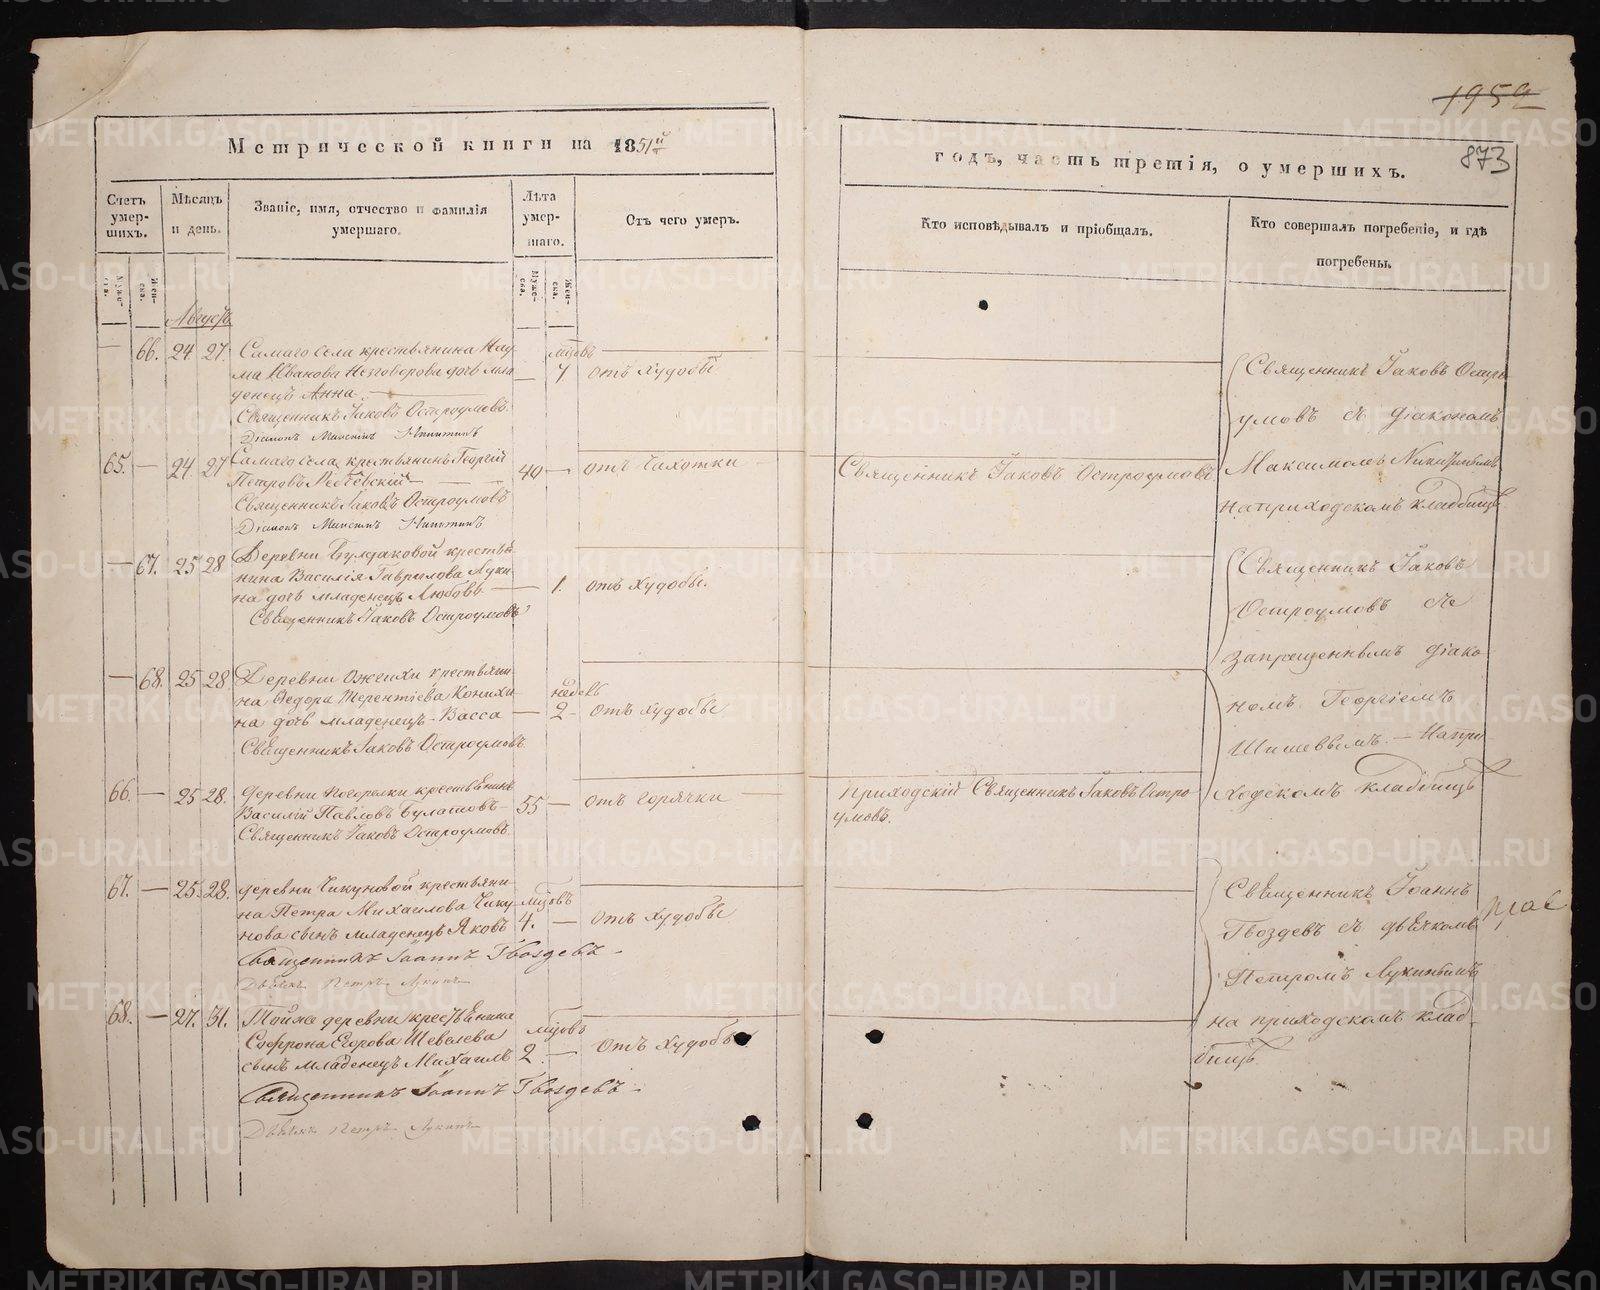 1959
Метрической книги на 1851й
годъ, часть третія, о умершихъ.
873
Счетъ умер-шихъ.
Мѣсяцъ и день.
Званіе, имя, отчество и фамилія умершаго.
Лѣта умер-шаго.
Отъ чего умеръ.
Кто исповѣдывалъ и пріобщалъ.
Кто совершалъ погребеніе, и гдѣ погребены.
Муже-ска.
Жен-ска.
Муже-ска.
Жен-ска.
Августъ
— 66. 24 27. Самаго села крестьянина Нау-
ма Иванова Незговорова дочь мла-
денецъ Анна
мцовъ
— 7 отъ худобы
Священникъ Іаковъ Остроумовъ.
Діаконъ Максимъ Никитинъ
65. — 24 27 Самаго села крестьянинъ Георгій
Петровъ
40 — отъ чахотки
Священникъ Іаковъ Остроумовъ
Священникъ Іаковъ Остроумовъ
Діаконъ Максимъ Никитинъ
Священникъ Іаковъ Остро-
умовъ съ діакономъ
Максимомъ Никитинымъ
на приходскомъ кладбищѣ
— 67. 25 28 Деревни Булдаковой крестья-
нина Василія Гаврилова Луки-
на дочь младенецъ Любовь
— 1. отъ худобы.
Священникъ Іаковъ Остроумовъ
— 68. 25 28 Деревни Ожгихи крестьяни-
на Ѳедора Терентіева Конихи-
на дочь младенецъ Васса
недель
— 2 отъ худобы
Священникъ Іаковъ Остроумовъ.
66. — 25 28. Деревни Погорелки крестьянинъ
Василій Павловъ Булатовъ
55 — отъ горячки
Приходскій Священникъ Іаковъ Остро-
умовъ.
Священникъ Іаковъ Остроумовъ
Священникъ Іаковъ
Остроумовъ съ
запрещеннымъ діако-
номъ Георгіемъ
Шишевымъ — На при-
ходскомъ кладбищѣ
67. — 25. 28. Деревни Чикуновой крестьяни-
на Петра Михаилова Чику-
нова сынъ младенецъ Яковъ
мцовъ
4. — отъ худобы
Священникъ Іоаннъ Гвоздевъ
Дьячекъ Петръ Лукинъ
68. — 27. 31. Тойже деревни крестьянина
Софрона Егорова Шевелева
сынъ младенецъ Михаилъ
мцовъ
2 — отъ худобы
Священникъ Іоаннъ Гвоздевъ
Дьячекъ Петръ Лукинъ
Священникъ Іоаннъ
Гвоздевъ съ дьячкомъ
Петромъ Лукинымъ
на приходскомъ клад-
бищѣ
METRIKI.GASO-URAL.RU